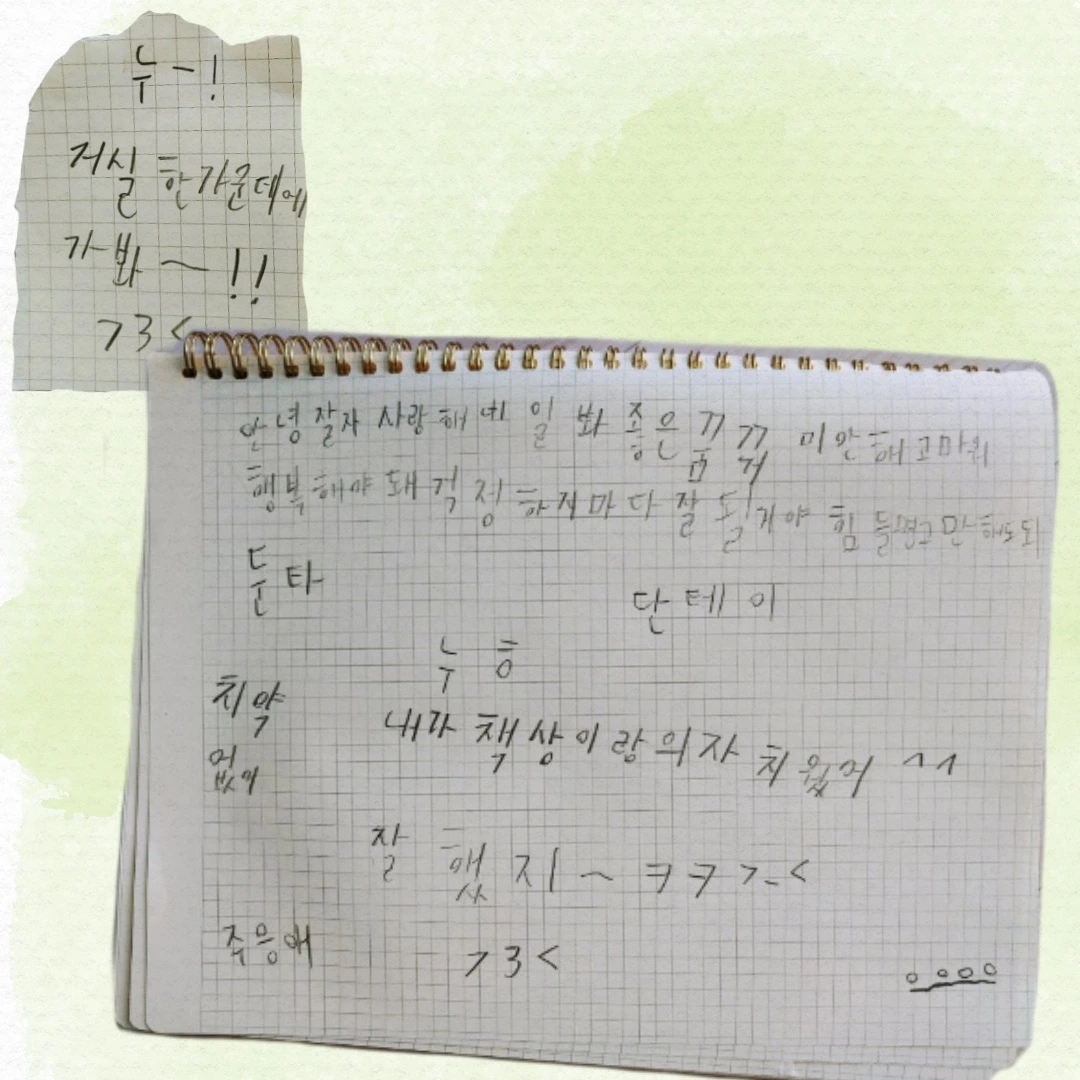 누-!
거실 한가운데에
가봐~!!
>3<
안녕 잘자 사랑해 내일 봐 좋은 꿈 꿔 미안해 고마워
행복해야 돼 걱정하지마 다 잘 될거야 힘들면 그만해도 돼
둔타
단테이
누 흥
치약
없어
내가 책상이랑 의자 치웠어 ^^
잘 했지~ ㅋㅋ >-<
주응애
>3<